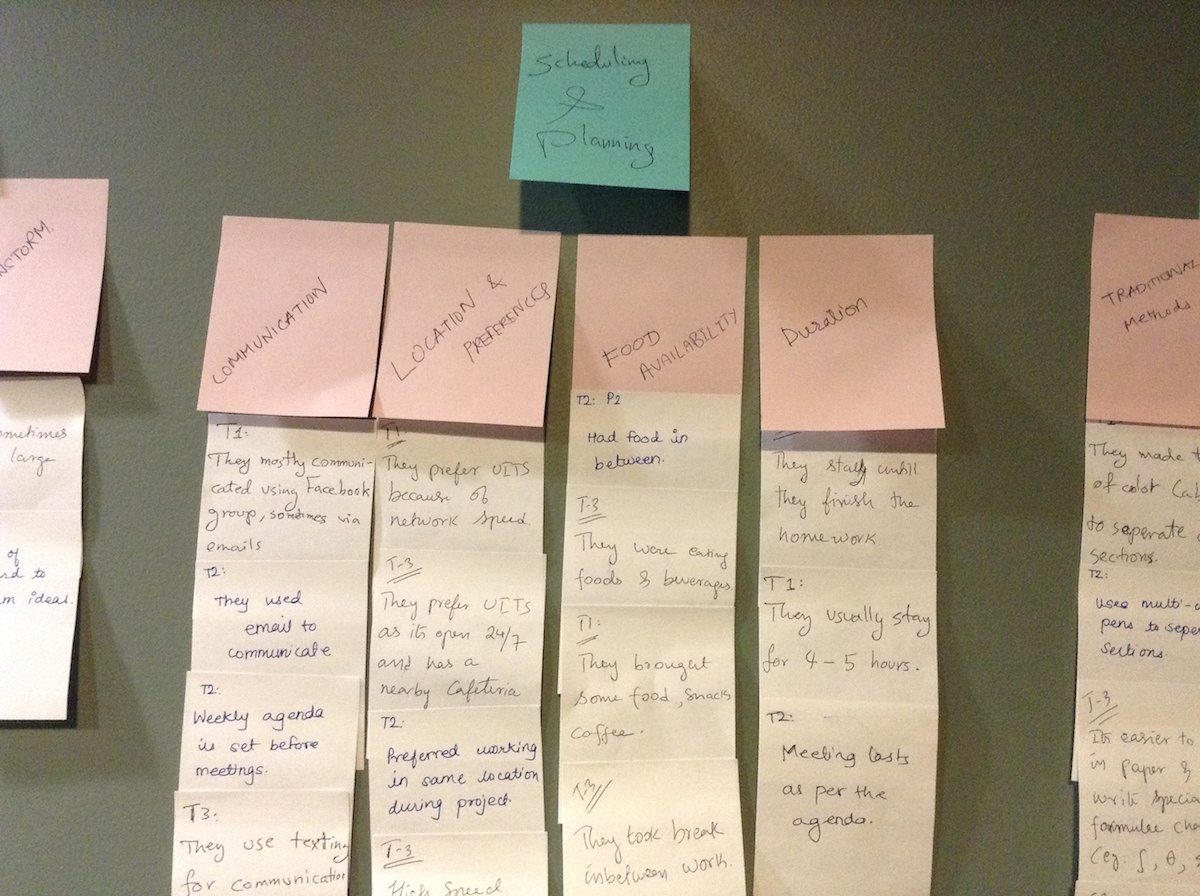 Scheduling
&
Planning
NSTORM.
ometimes
large
of
rd to
m ideas.
COMMUNICATION
T1:
They mostly communi-
cated using Facebook
group, sometimes via
emails
T2:
They used
email to
communicate
T2:
Weekly agenda
is set before
meetings.
T3:
They use texting
for communication
LOCATION &
PREFERENCES
T1
They prefer UITS
because of
network speed.
T-3
They prefer UITS
as its open 24/7
and has a
nearby Cafeteria
T2:
Preferred working
in same location
during project.
T-3
High Speed
FOOD
AVAILABILITY
T2: P2
Had food in
between.
T-3
They were eating
foods & beverages.
T1:
They brought
some food, snacks
coffee.
T-3
They took break
inbetween work.
Duration
They stay untill
they finish the
homework.
T1:
They usually stay
for 4-5 hours.
T2:
Meeting lasts
as per the
agenda.
TRADITIONAL
Methods
They made t
of color Cab
to seperate
sections.
T2:
Uses multi-c
pens to seper
sections.
T-3
Its easier to
in paper &
write specia
formulee cha
(eg: ∫, θ,